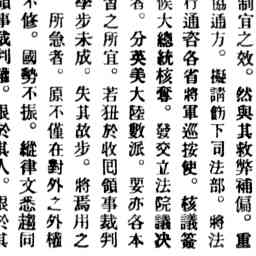 制宜之效。然與其救弊補偏。重
協通方。擬請飭下司法部。將法
行通咨各省將軍巡按使。核議簽
候大總統核奪。發交立法院議决
者。分英美大陸數派。要亦各本
之所宜。若狃於收囘領事裁判
學步未成。失其故步。將焉用之
所急者。原不僅在對外之外權
不修。國勢不振。縱律文悉趨同
事裁判權。於其人。於其